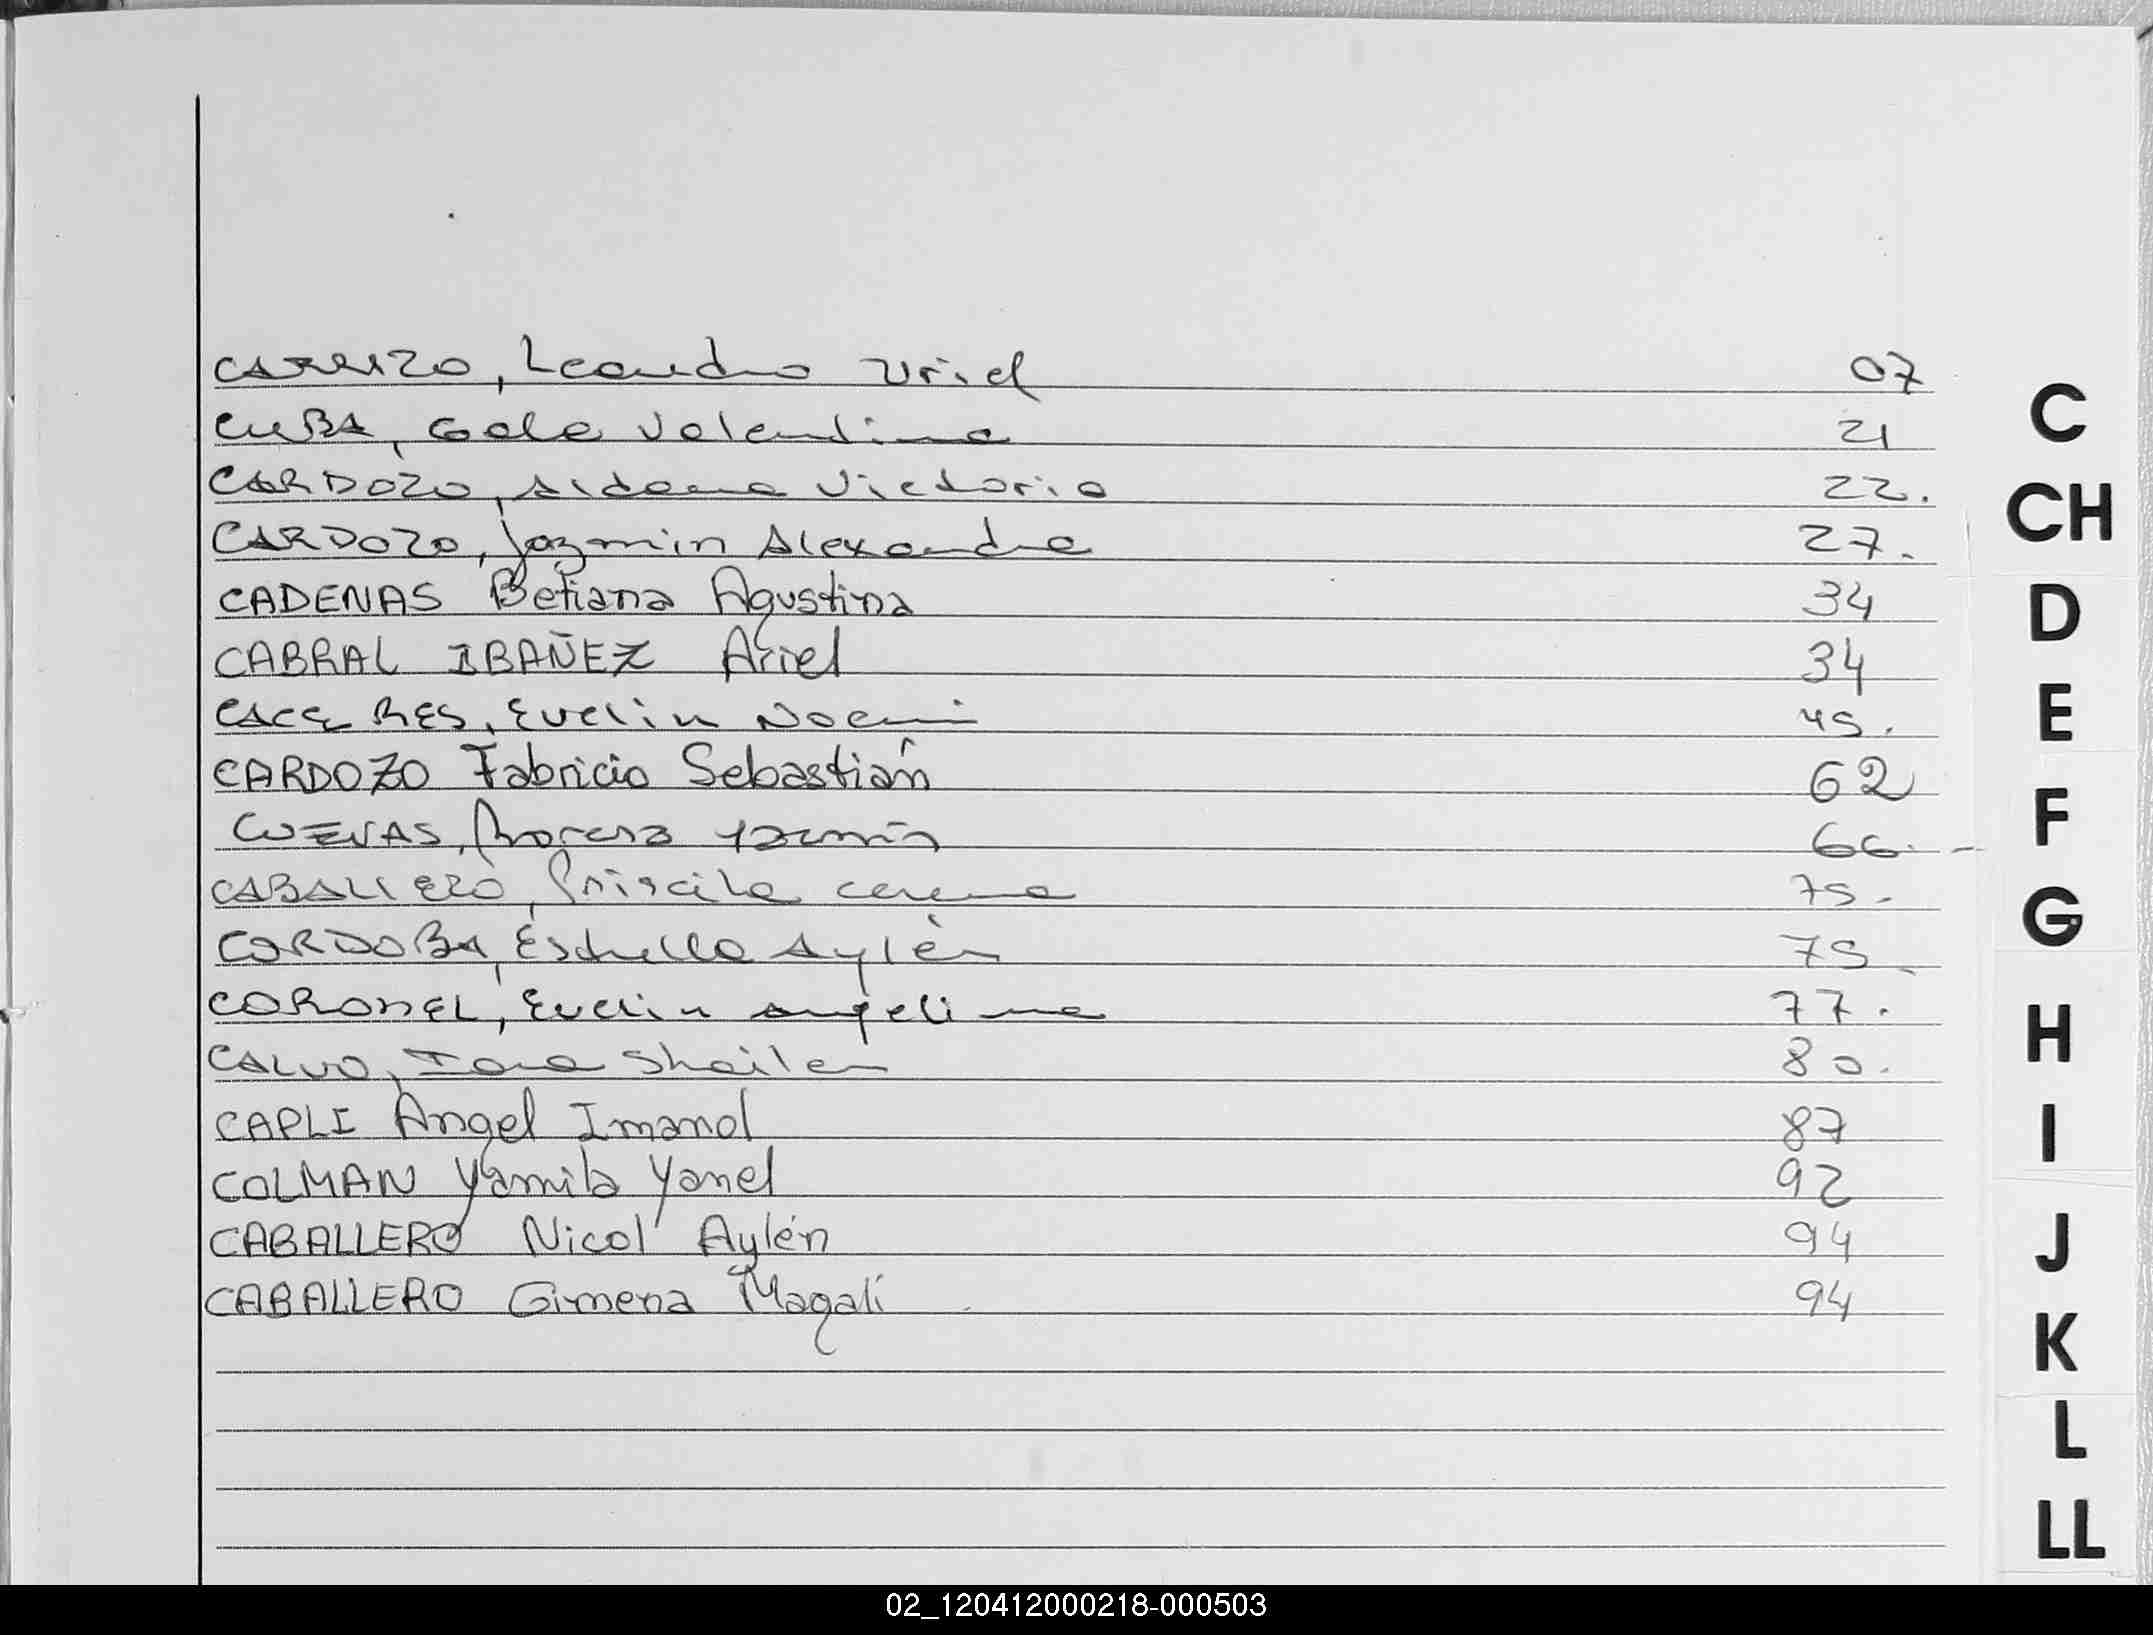 CARRIZO, Leandro Uriel 07
CUBA, Gala Valentina 21
CARDOZO, Aldana Victoria 22.
CARDOZO, Jazmin Alexandra 27.
CADENAS Betiana Agustina 34
CABRAL IBAÑEZ Ariel 34
CACERES, Evelin Noemi 45.
CARDOZO Fabricio Sebastián 62
CUEVAS, Morena Yazmín 66.
CABALLERO, Priscila 75.
CORDOBA, Estrella Aylén 75
CORONEL, Evelin Angelina 77.
CALVO, Iara Shailen 80.
CAPLI Angel Imanol 87
COLMAN Yamila Yanel 92
CABALLERO Nicol Aylén 94
CABALLERO Gimena Magalí 94
C
CH
D
E
F
G
H
I
J
K
L
LL
02_120412000218-000503